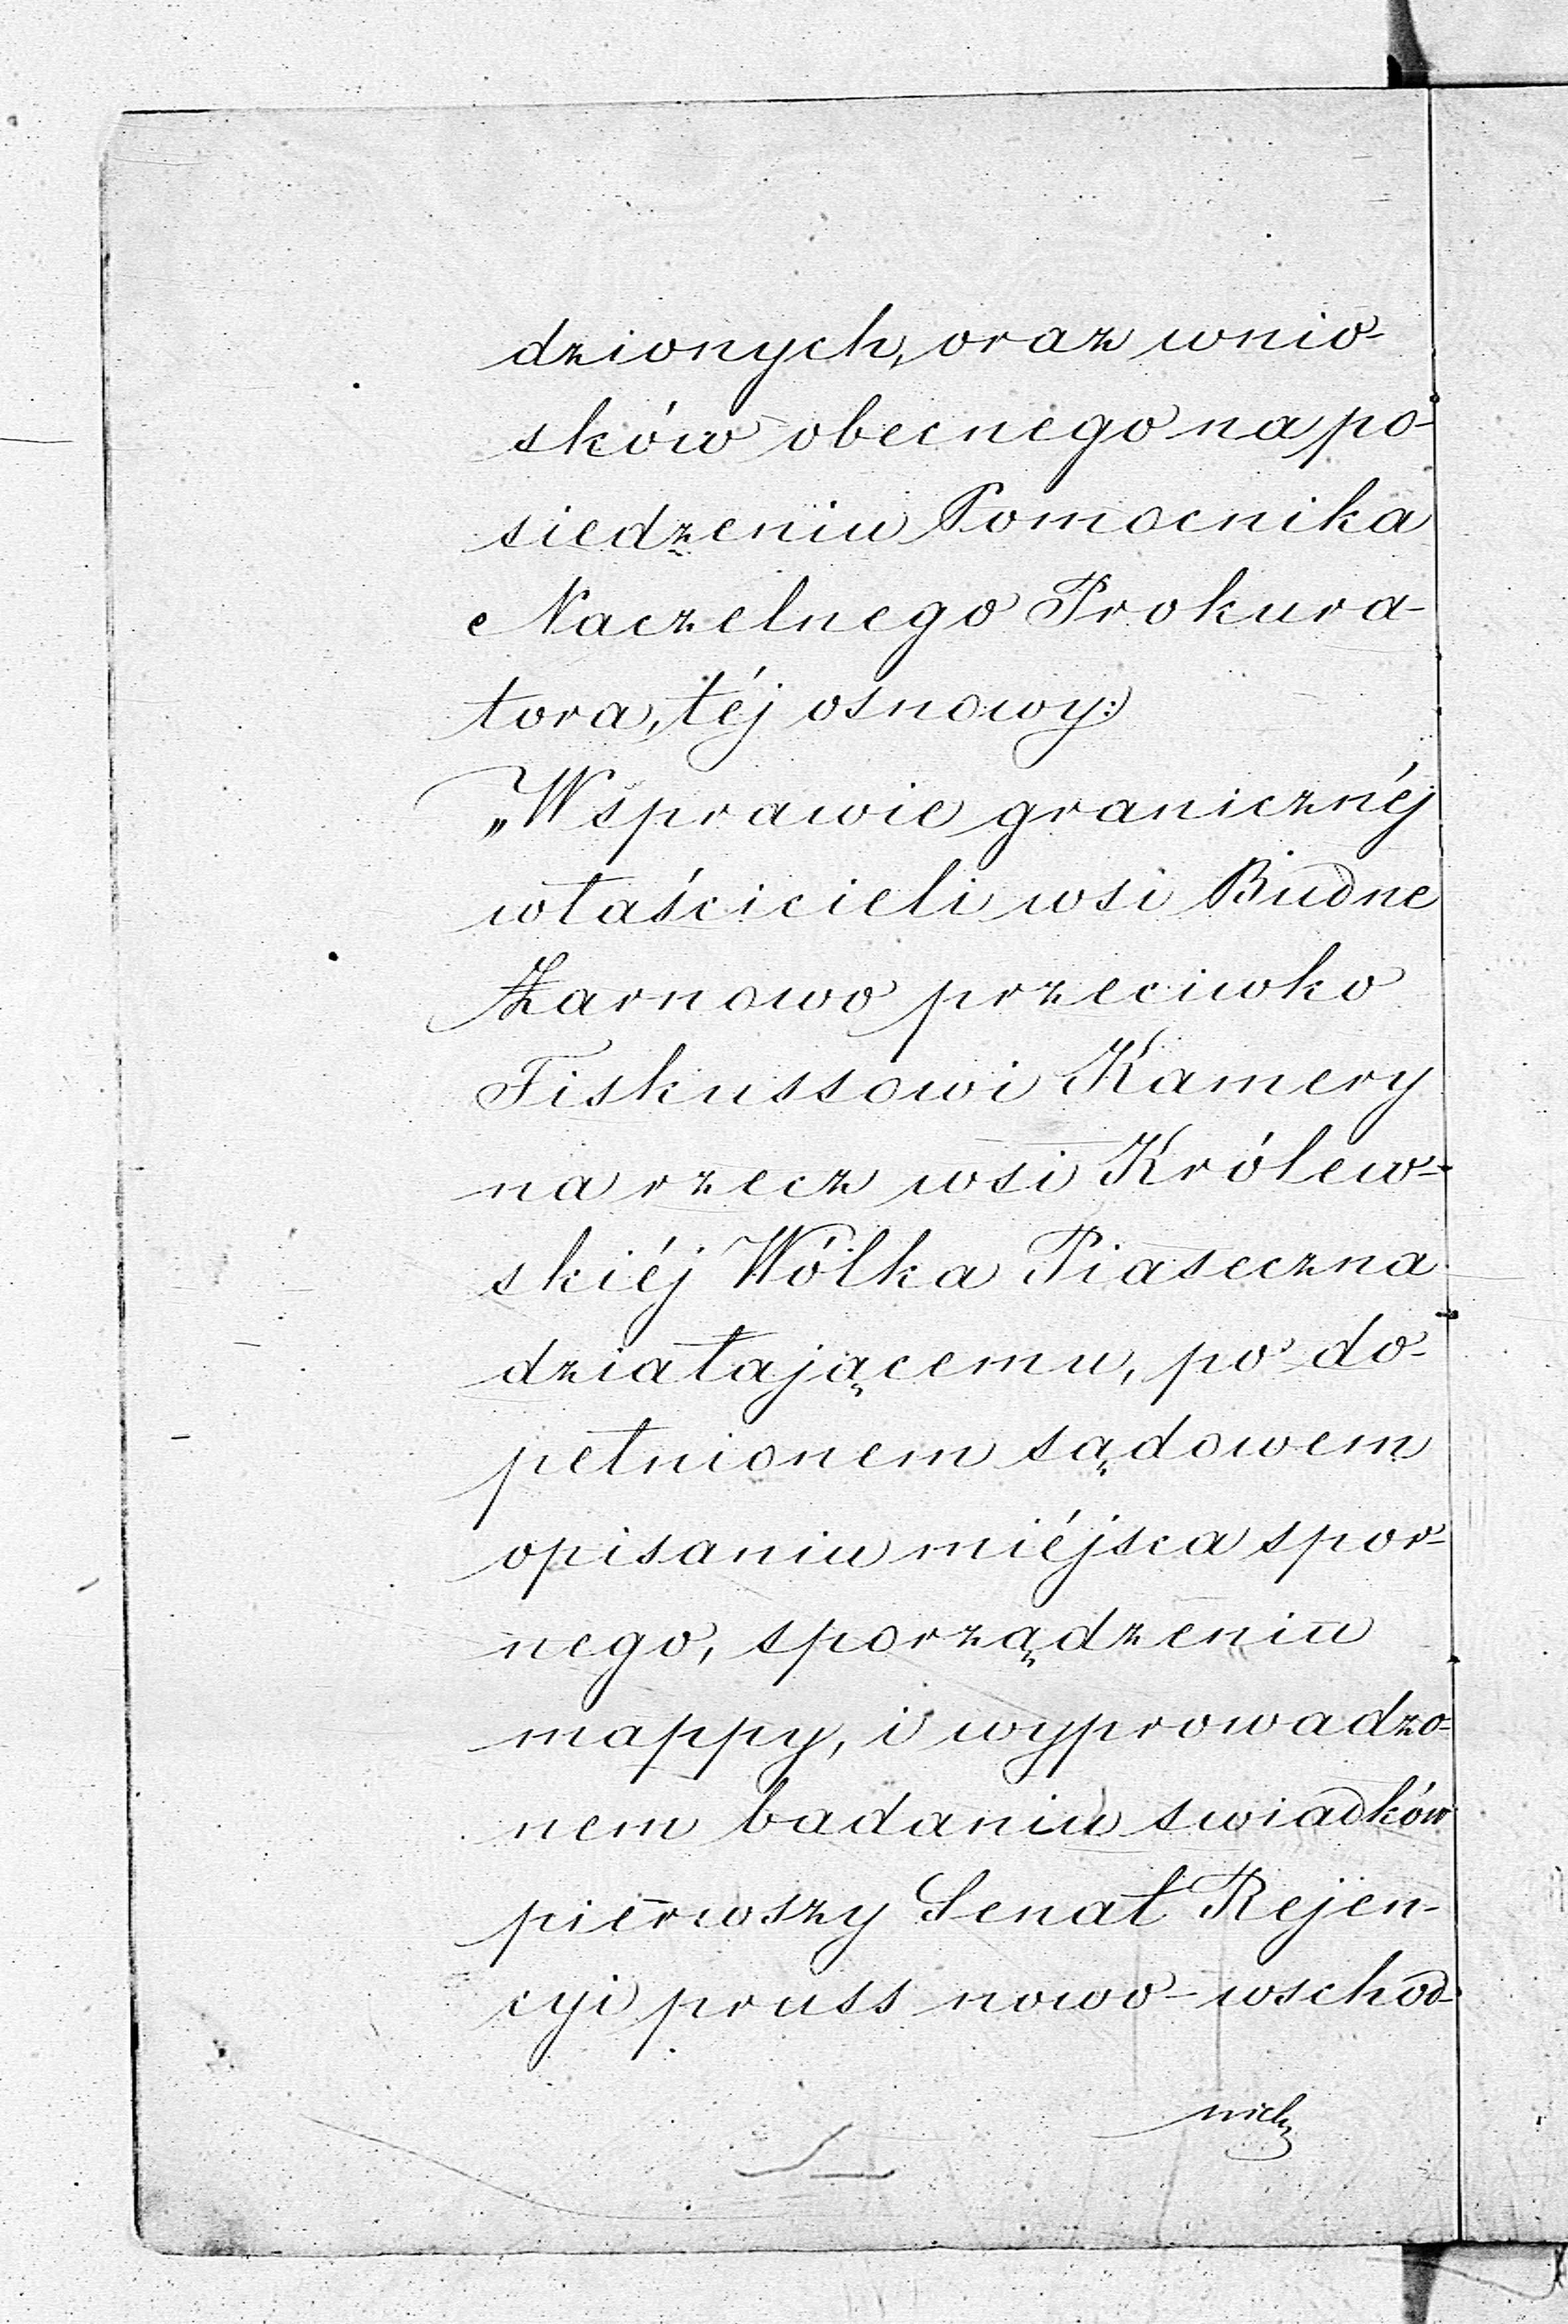 dzionych, oraz wnio-
sków obecnego na po-
siedzeniu Pomocnika
Naczelnego Prokura-
tora, téj osnowy:
„W sprawie granicznéj
właścicieli wsi Budne
Żarnowo przeciwko
Fiskussowi Kamery
na rzecz wsi Królew-
skiéj Wólka Piaseczna
działającemu, po do-
pełnionem sądowem
opisaniu miéjsca spor-
nego, sporządzeniu
mappy, i wyprowadzo-
nem badaniu swiadków
pierwszy Senat Rejen-
cyi pruss nowo-wschod-
nich